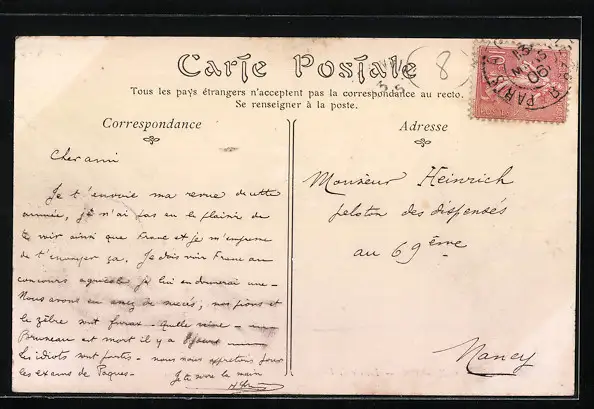 Carte Postale
8
Tous les pays étrangers n'acceptent pas la correspondance au recto.
Se renseigner à la poste.
Correspondance
Adresse
PARIS
Cher ami
Je t'envoie ma revue de cette
année, je n'ai pas eu le plaisir de
te voir ainsi que Franc et je m'empresse
de t'envoyer ça. Je dois voir Franc au
concours je lui en donnerai une -
Nous avons eu assez de succès, nos pions et
le zèbre sont furax - Quelle veine -
Bruneau est mort il y a 8 jours
les idiots sont partis - nous nous apprêtons pour
les exams de Paques -
Je te serre la main
Monsieur Heinrich
peloton des dispensés
au 69ème
Nancy